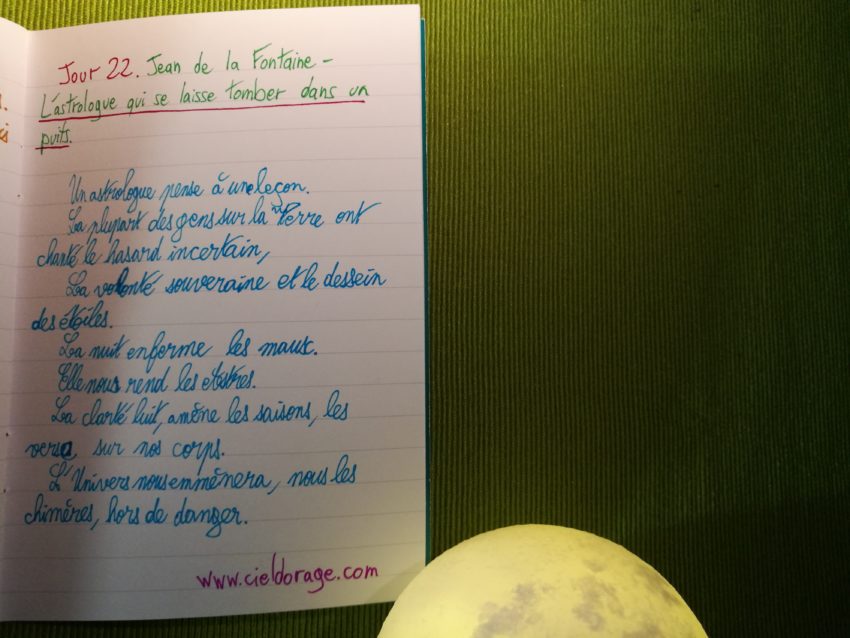 Jour 22. Jean de la Fontaine -
L'astrologue qui se laisse tomber dans un
puits.
Un astrologue pense à une leçon.
La plupart des gens sur la Terre ont
chanté le hasard incertain,
La volonté souveraine et le dessein
des étoiles.
La nuit enferme les maux.
Elle nous rend les astres.
La clarté luit, amène les saisons, les
versa, sur nos corps.
L'Univers nous emmènera, nous les
chimères, hors de danger.
www.cieldorage.com